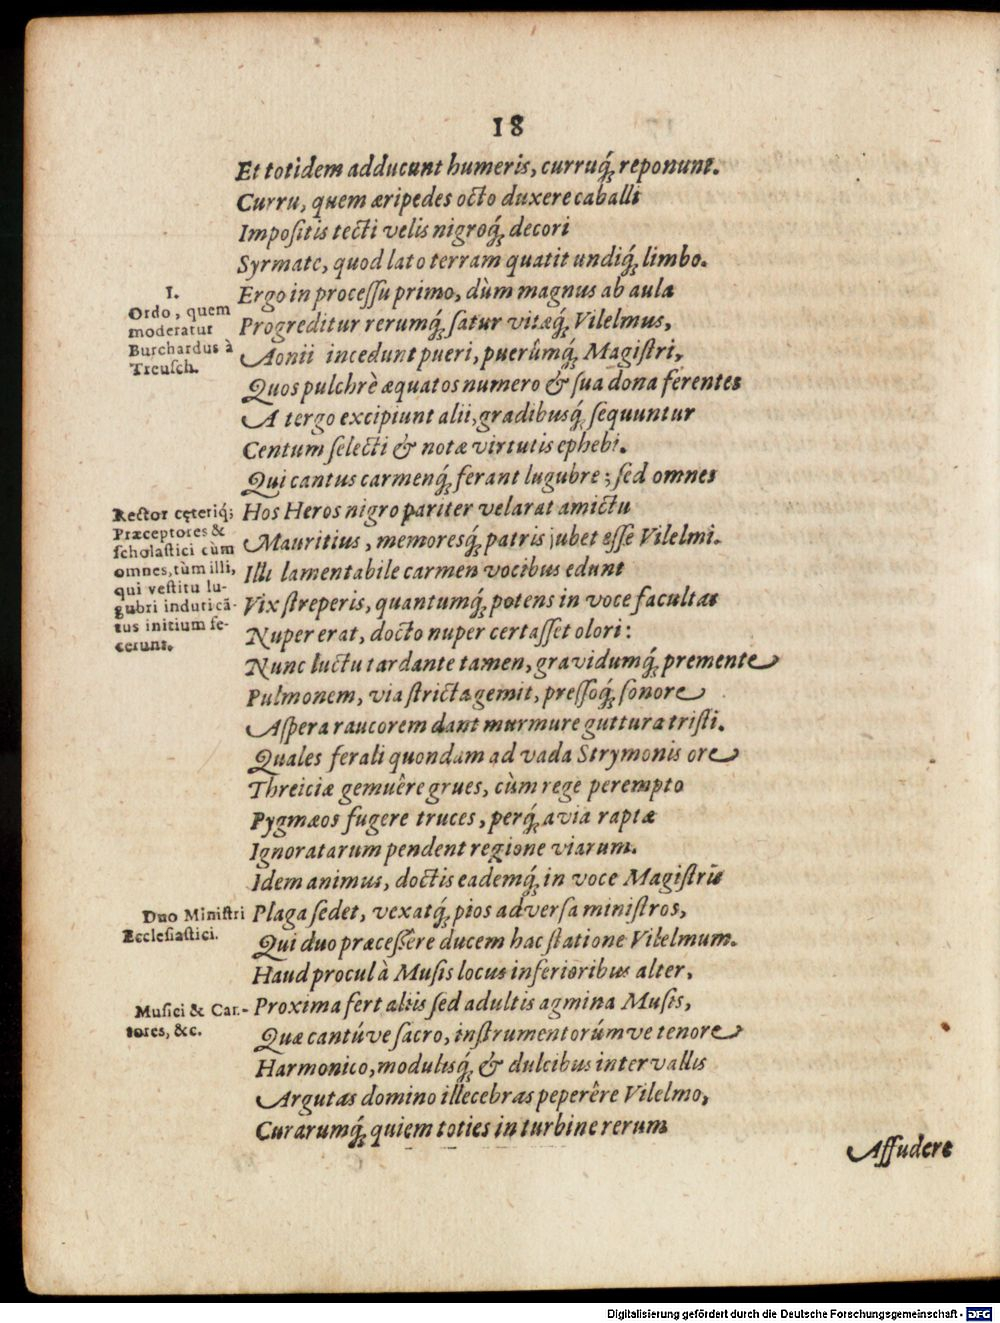 18
Et totidem adducunt humeris, curruq́; reponunt.
Curru, quem æripedes octo duxere caballi
Impoſitis tecti velis nigroq́; decori
Syrmate, quod lato terram quatit undiq́; limbo.
I.
Ordo, quem
moderatur
Burchardus à
Treuſch.
Ergo in proceſſu primo, dùm magnus ab aula
Progreditur rerumq́; ſatur vitæq́; Vilelmus,
Aonii incedunt pueri, puerûmq́; Magiſtri,
Quos pulchrè æquatos numero & ſua dona ferentes
A tergo excipiunt alii, gradibusq́; ſequuntur
Centum ſelecti & notæ virtutis ephebi.
Qui cantus carmenq́; ferant lugubre; ſed omnes
Rector cęteriq́;
Præceptores &
ſcholaſtici cùm
omnes, tùm illi,
qui veſtitu lu-
gubri induti cã-
tus initium fe-
cerunt.
Hos Heros nigro pariter velarat amictu
Mauritius, memoresq́; patris jubet eſſe Vilelmi.
Illi lamentabile carmen vocibus edunt
Vix ſtreperis, quantumq́; potens in voce facultas
Nuper erat, docto nuper certaſſet olori:
Nunc luctu tardante tamen, gravidumq́; premente
Pulmonem, via ſtricta gemit, preſſoq́; ſonore
Aſpera raucorem dant murmure guttura triſti.
Quales ferali quondam ad vada Strymonis ore
Threiciæ gemuêre grues, cùm rege perempto
Pygmæos fugere truces, perq́; avia raptæ
Ignoratarum pendent regione viarum.
Idem animus, doctis eademq́; in voce Magiſtris
Duo Miniſtri
Eccleſiaſtici.
Plaga ſedet, vexatq́; pios adverſa miniſtros,
Qui duo præceſſêre ducem hac ſtatione Vilelmum.
Haud procul à Muſis locus inferioribus alter,
Muſici & Can-
tores, &c.
Proxima fert aliis ſed adultis agmina Muſis,
Quæ cantúve ſacro, inſtrumentorúmve tenore
Harmonico, modulisq́; & dulcibus intervallis
Argutas domino illecebras peperêre Vilelmo,
Curarumq́; quiem toties in turbine rerum
Affudere
Digitalisierung gefördert durch die Deutsche Forschungsgemeinschaft - DFG